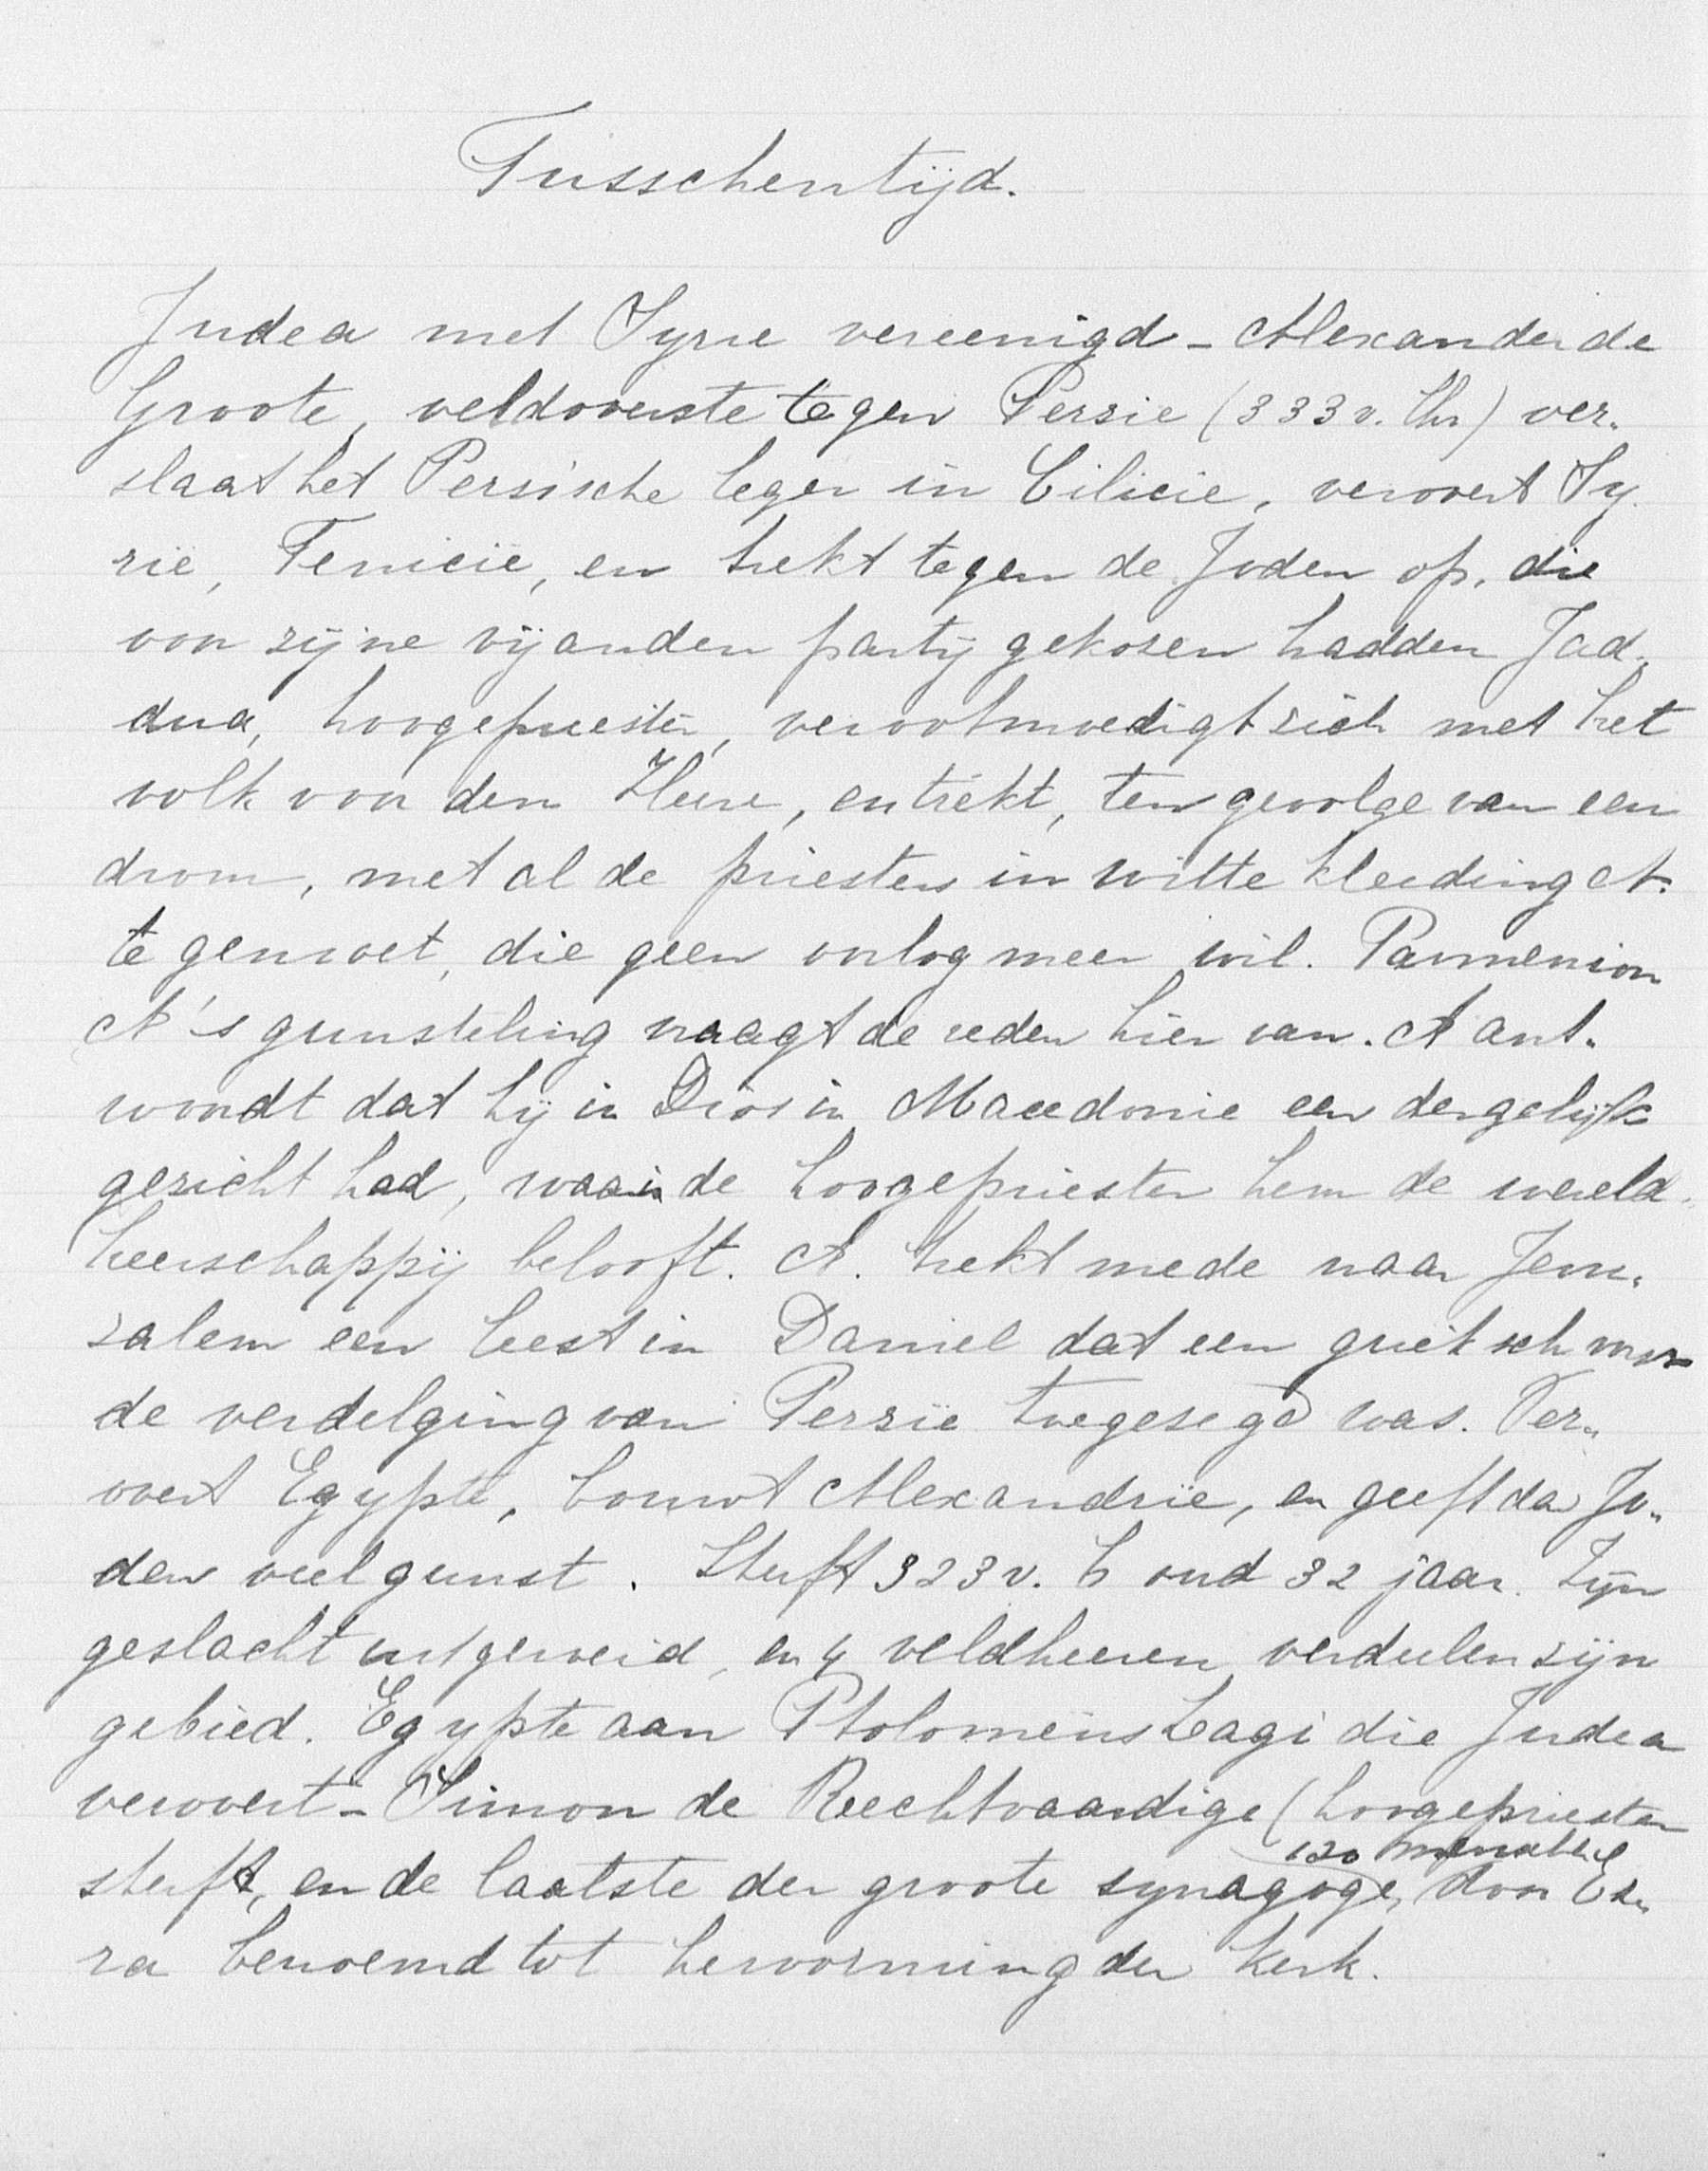 Tusschentijd.
Judea met Syrie vereenigd - Alexander de
Groote, veldoverste tegen Persie (333 v. Chr) ver-
slaat het Persische leger in Cilicie, verovert Sy-
rië, Fenicië, en trekt tegen de Joden op, die
voor zijne vijanden partij gekozen hadden Jad-
dua, hoogepriester, verootmoedigt zich met het
volk voor den Heere, en trekt, ten gevolge van een
droom, met al de priesters in witte kleeding A.
te gemoet, die geen oorlog meer wil. Parmenion
A's gunsteling vraagt de reden hier van. A ant-
woordt dat hij in Dios in Macedonie een dergelijk
gezicht had, waarin de hoogepriester hem de wereld-
heerschappij belooft. A. trekt mede naar Jeru-
zalem en leest in Daniel dat een grieksch vorst
de verdelging van Perzië toegezegd was. Ver-
overt Egypte, bouwt Alexandrië, en geeft de Jo-
den veel gunst. Sterft 323 v. C oud 32 jaar. Zijn
geslacht uitgeroeid, en 4 veldheeren verdeelen zijn
gebied. Egypte aan Ptolomeüs Lagi die Judea
verovert - Simon de Rechtvaardige (hoogepriester
120 mannen
sterft, en de laatste der groote synagoge, door Ez-
ra benoemd tot hervorming der kerk.